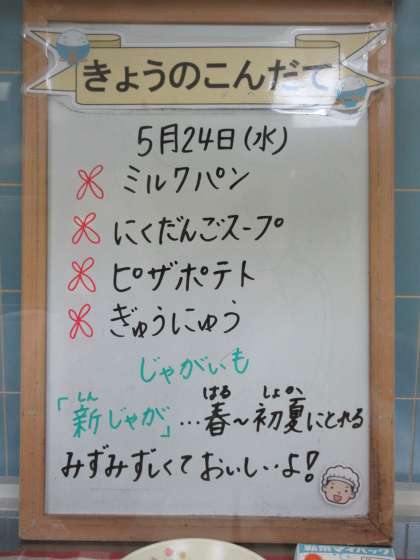 きょうのこんだて
5月24日(水)
ミルクパン
にくだんごスープ
ピザポテト
ぎゅうにゅう
じゃがいも
「新じゃが」…春～初夏にとれる
しん はる しょか
みずみずしくておいしいよ!